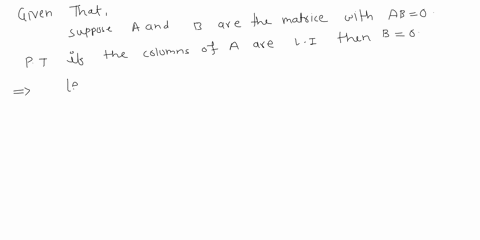 Given That,
suppose A and B are the matrice with AB=0.
P T if the columns of A are L.I then B=0.
⇒ le